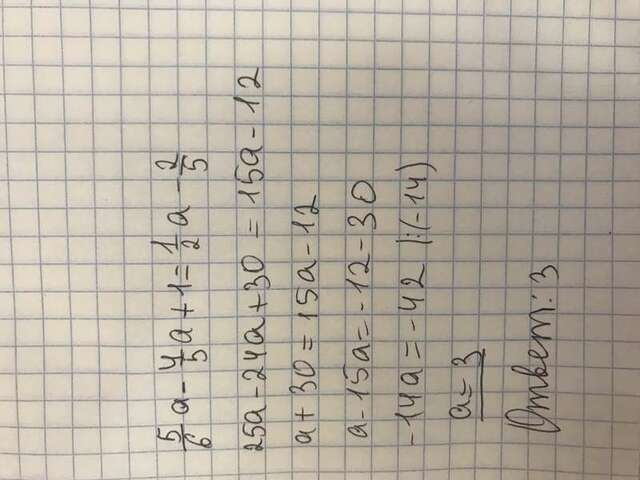 5/6 a - 4/5 a + 1 = 1/2 a - 2/5
25a - 24a + 30 = 15a - 12
a + 30 = 15a - 12
a - 15a = -12 - 30
-14a = -42 |:(-14)
a = 3
Ответ: 3